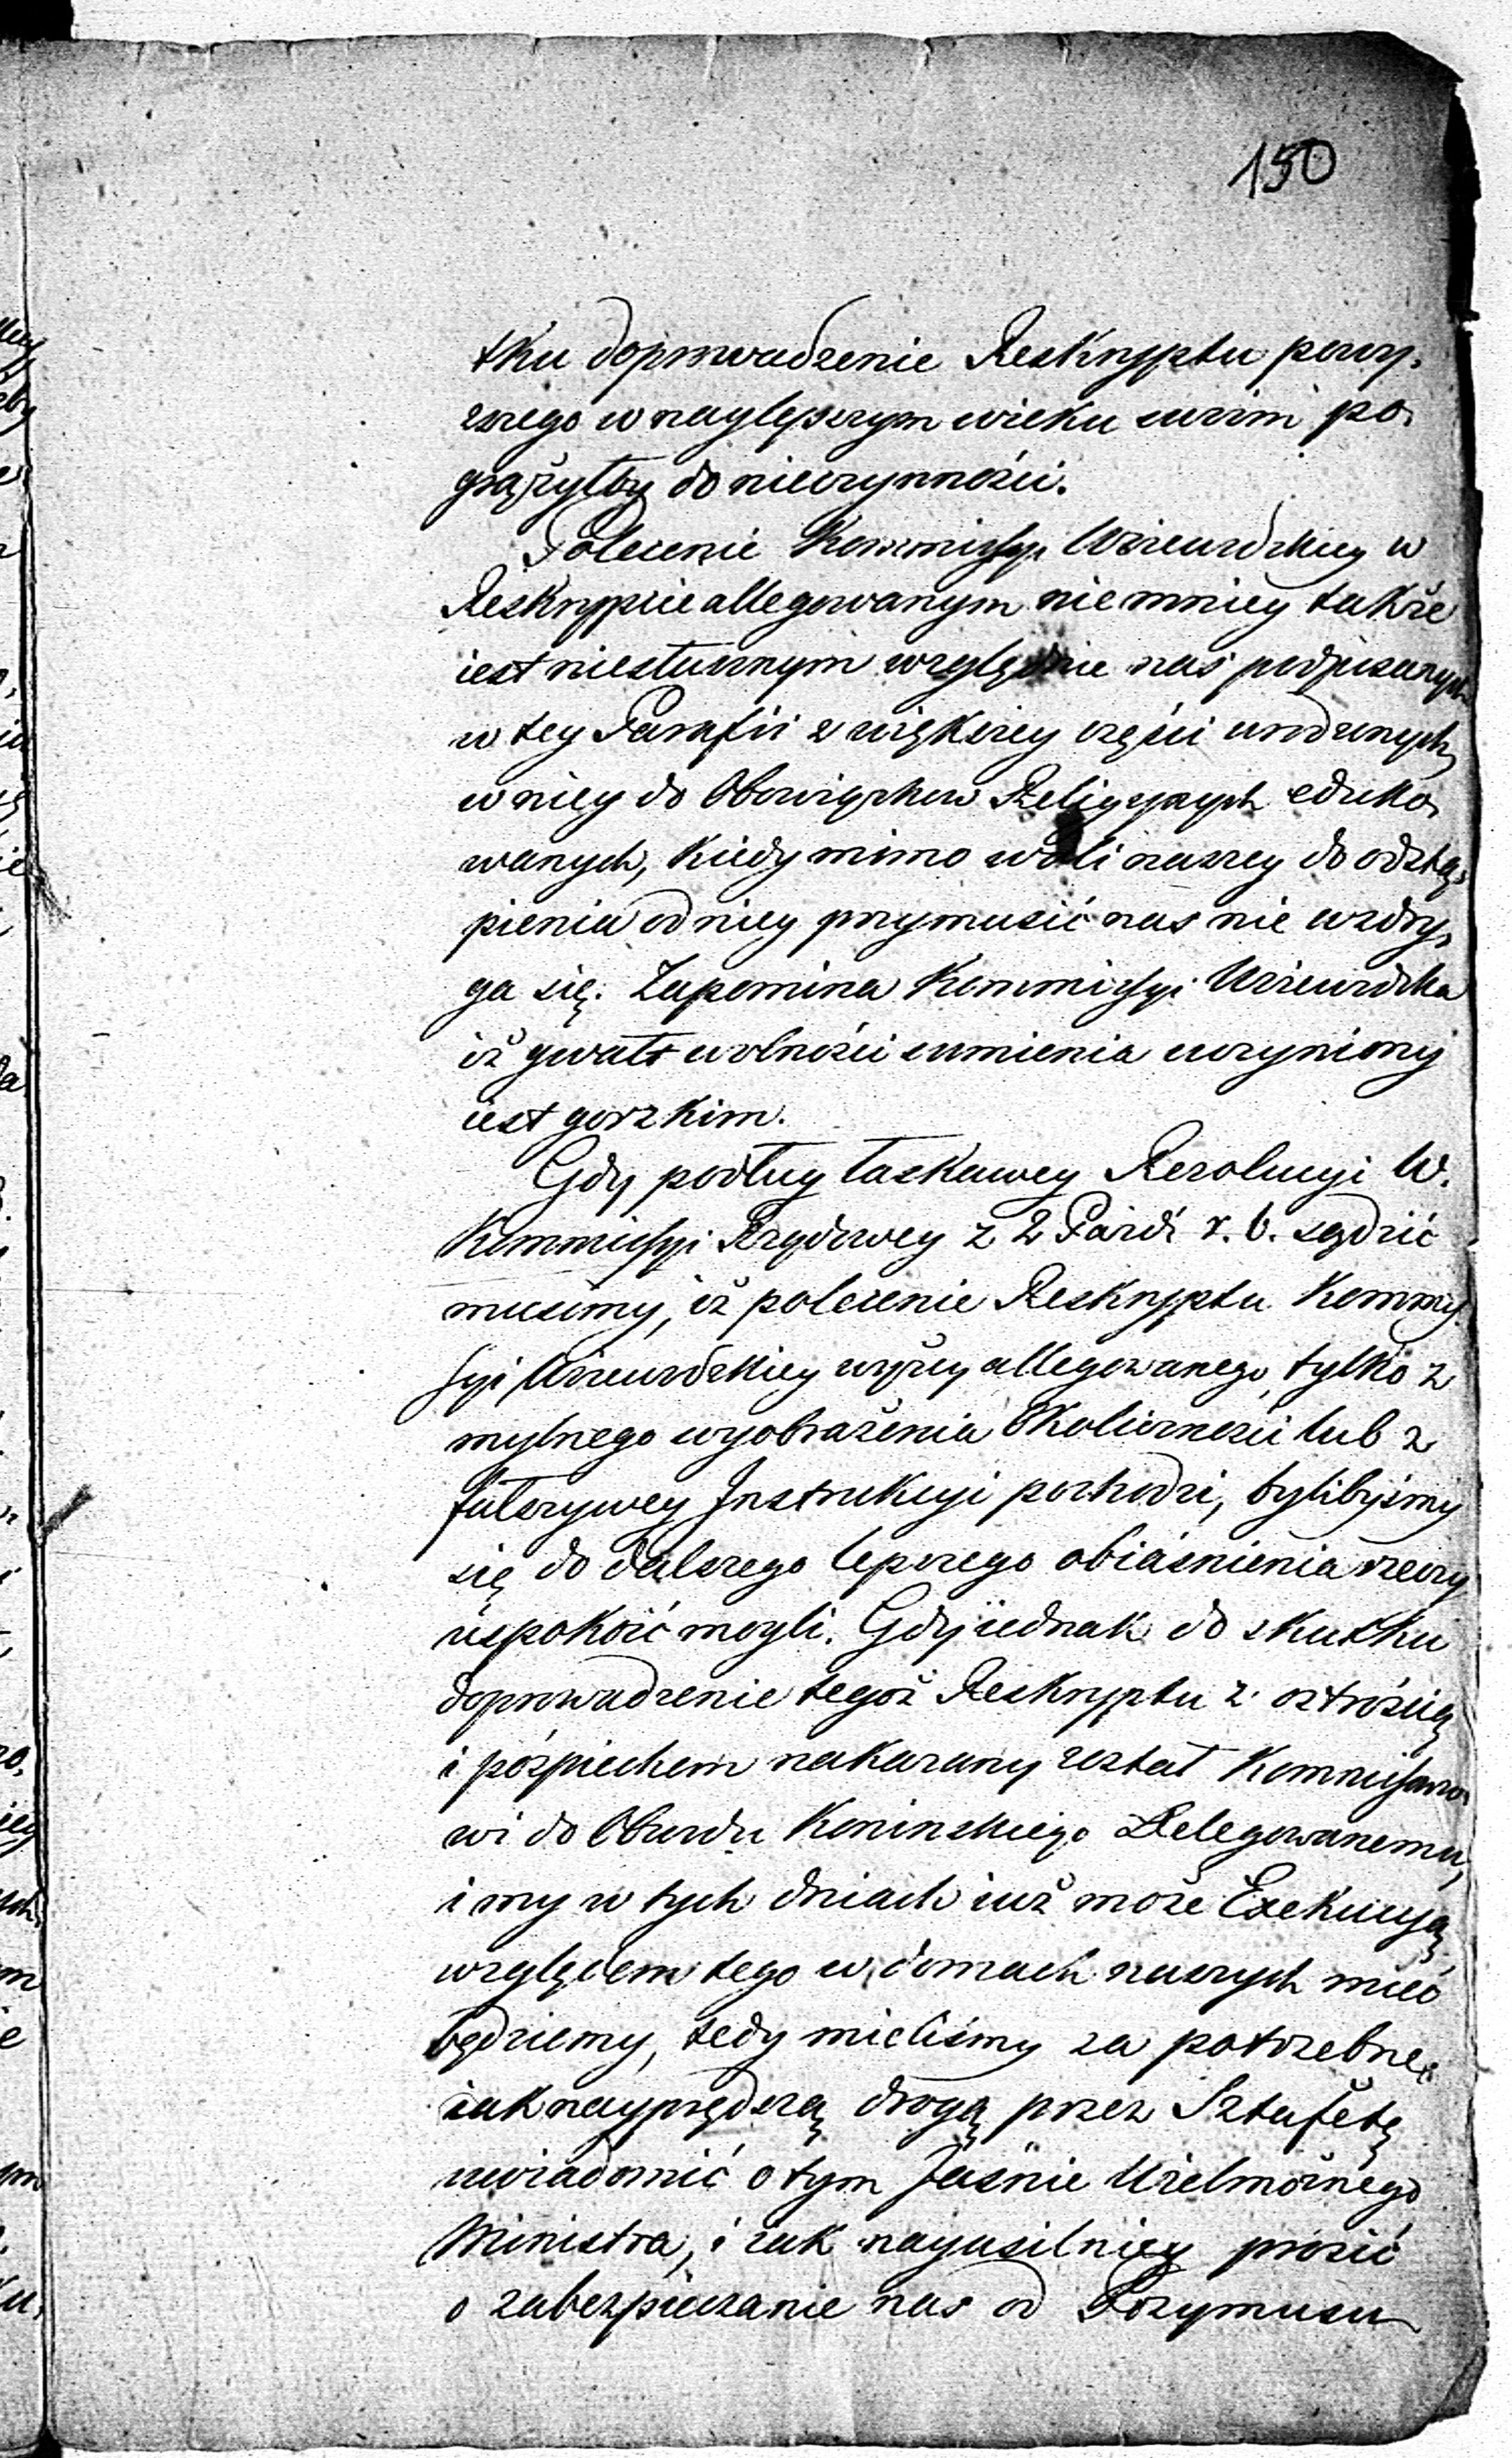 150
tku doprowadzenie Reskryptu powy,
zszego w naylepszym wieku swim po,
grążyłby do nieczynności.
Polecenie Kommissyi Woiewodzkiey w
Reskrypcie allegowanym niemniey także
iest niesłusznym względnie nas podpisanych
w tey Parafii z większey części urodzonych
w niey do Obowiązkow Religiynych eduko,
wanych, kiedy mimo woli naszey do odstą,
pienia od niey przymusić nas nie wzdry,
ga się. Zapomina Kommissyi Woiewodzka
iż gwałt wolności sumienia uczyniony
iest gorzkim.
Gdy podług łaskawey Rezolucyi W.
Kommissyi Rządowey z 2 Paźdź r. b. sądzić
musimy, iż polecenie Reskryptu Kommis
syi Woiewodzkiey wyżey allegowanego, tylko z
mylnego wyobrażenia Okoliczności lub z
fałszywey Instrukcyi pochodzi, bylibyśmy
się do dalszego lepszego obiaśnienia rzeczy
uspokoić mogli. Gdy iednak do skutku
doprowadzenie tegoż Reskryptu z ostrością
i pośpiechem nakazany został Kommissarzo
wi do Obwodu Koninskiego Delegowanemu,
i my w tych dniach iuż może Exekucyą
względem tego w domach naszych mieć
będziemy, tedy mieliśmy za potrzebne
iak nayprędszą drogą przez Sztafetę
uwiadomić o tym Jaśnie Wielmożnego
Ministra, i iak nayusilniey prosić
o zabezpieczanie nas od Przymusu